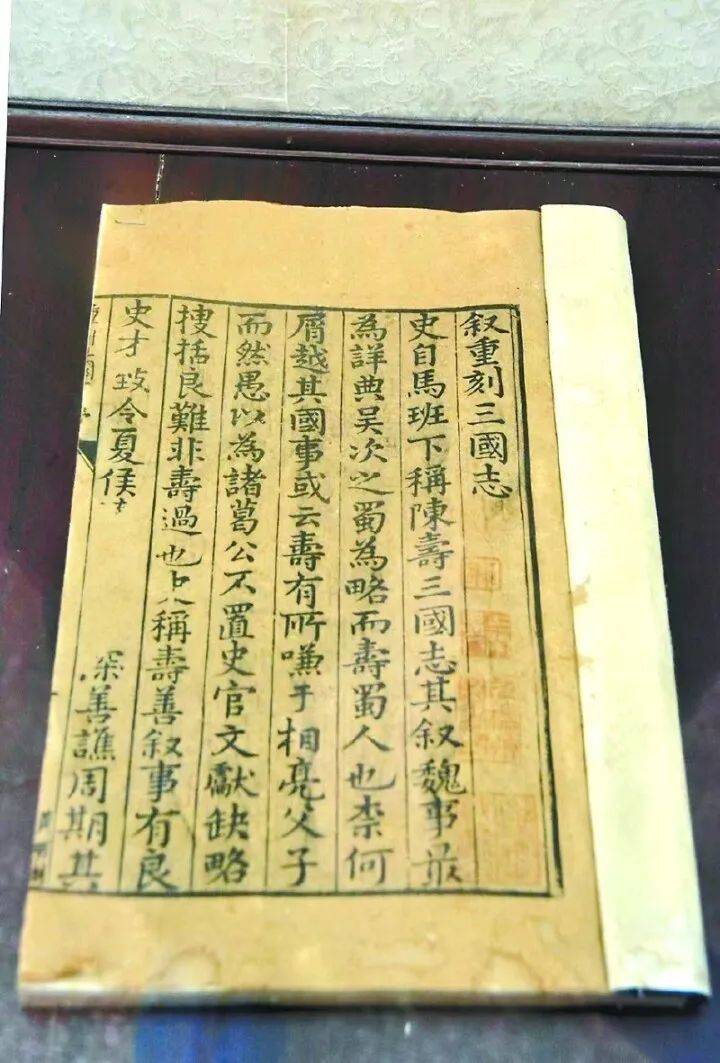 叙重刻三國志
史自馬班下稱陳壽三國志其叙魏事㝡
為詳典吴次之蜀為略而壽蜀人也柰何
屑越其國事或云壽有所嗛于相亮父子
而然愚以為諸葛公不置史官文獻缺略
搜括良難非壽過也史稱壽善叙事有良
史才致令夏侯
深善譙周期其